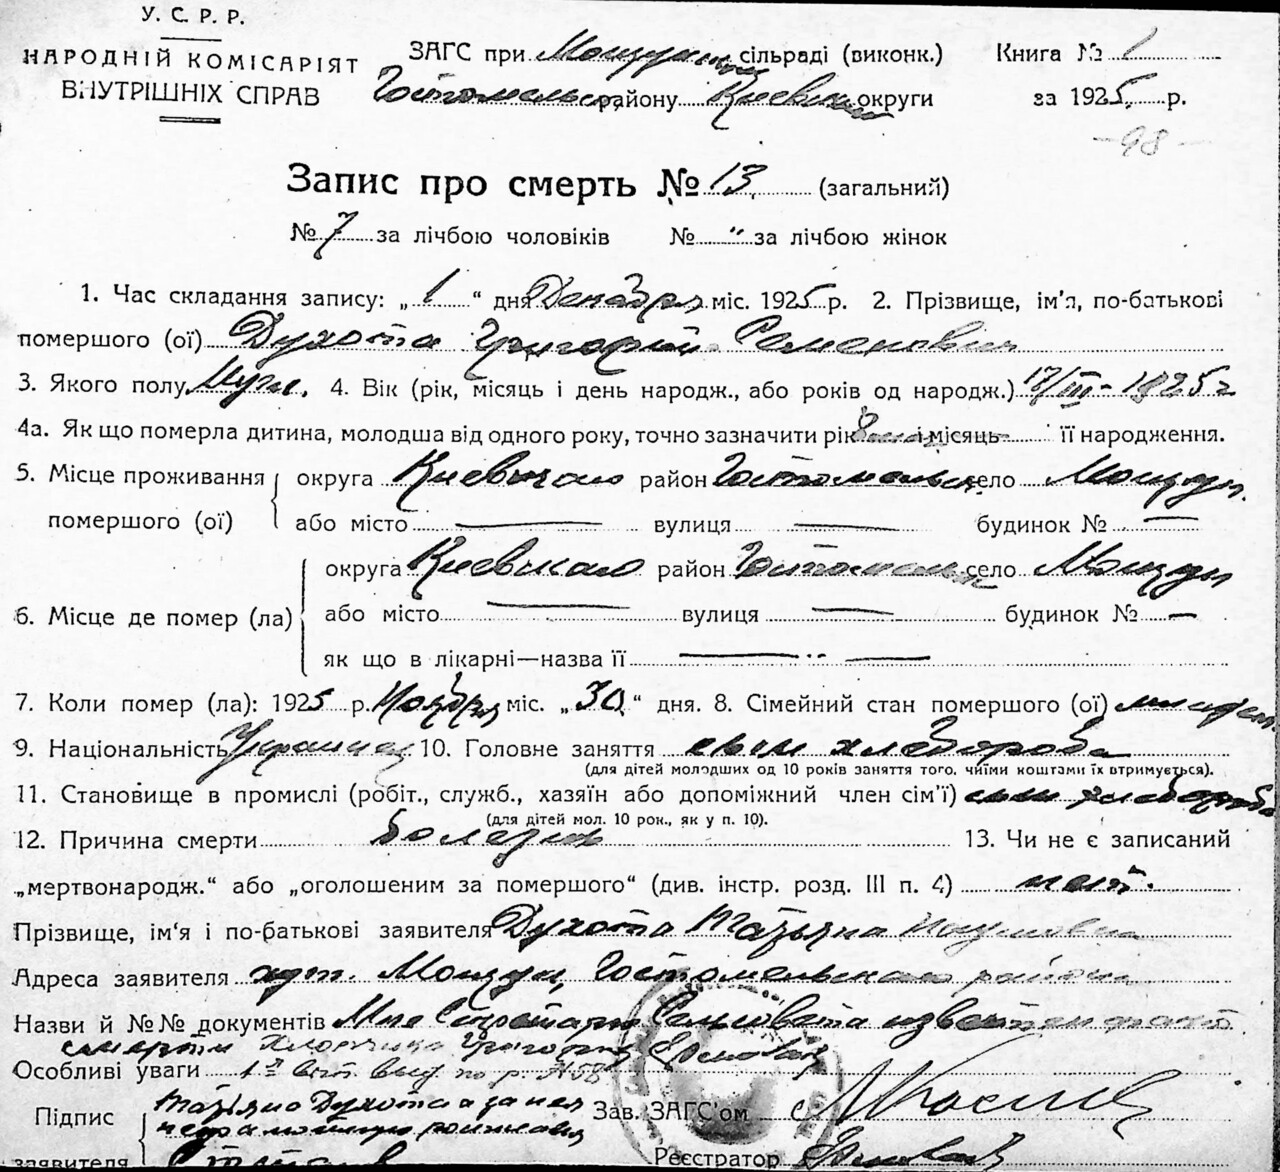 У. С. Р. Р.
НАРОДНІЙ КОМІСАРІЯТ
ВНУТРІШНІХ СПРАВ
ЗАГС при Мощунском сільраді (виконк.)
Гостомельск. району Киевской округи
Книга № 1
за 1925 р.
-98-
Запис про смерть № 13 (загальний)
№ 7 за лічбою чоловіків № " за лічбою жінок
1. Час складання запису: „1“ дня Декабря міс. 1925 р. 2. Прізвище, ім'я, по-батькові
помершого (ої) Духота Григорий Семенович
3. Якого полу Муж. 4. Вік (рік, місяць і день народж., або років од народж.) 17/III-1925 г
4а. Як що померла дитина, молодша від одного року, точно зазначити рік 8 і місяць її народження.
5. Місце проживання помершого (ої)
округа Киевского район Гостомельск. село Мощун.
або місто — вулиця — будинок № —
6. Місце де помер (ла)
округа Киевского район Гостомельск село Мощун
або місто — вулиця — будинок № —
як що в лікарні—назва її — " —
7. Коли помер (ла): 1925 р. Ноября міс. „30“ дня. 8. Сімейний стан помершого (ої)
9. Національність Украинец 10. Головне заняття сын хлебороба
(для дітей молодших од 10 років заняття того, чиїми коштами їх втримується).
11. Становище в промислі (робіт., служб., хазяїн або допоміжний член сім'ї) сын хлебороба
(для дітей мол. 10 рок., як у п. 10).
12. Причина смерти болезнь 13. Чи не є записаний
„мертвонародж.“ або „оголошеним за помершого“ (див. інстр. розд. III п. 4) нет.
Прізвище, ім'я і по-батькові заявителя Духота Татьяна Наумовна
Адреса заявителя хут. Мощун, Гостомельского района
Назви й №№ документів Мне Секретарю Сельсовета известен факт
смерти хлопчика Григория
Особливі уваги
Підпис заявителя
Татьяна Духота а за нея
неграмотную расписался
Зав. ЗАГС'ом
Реєстратор